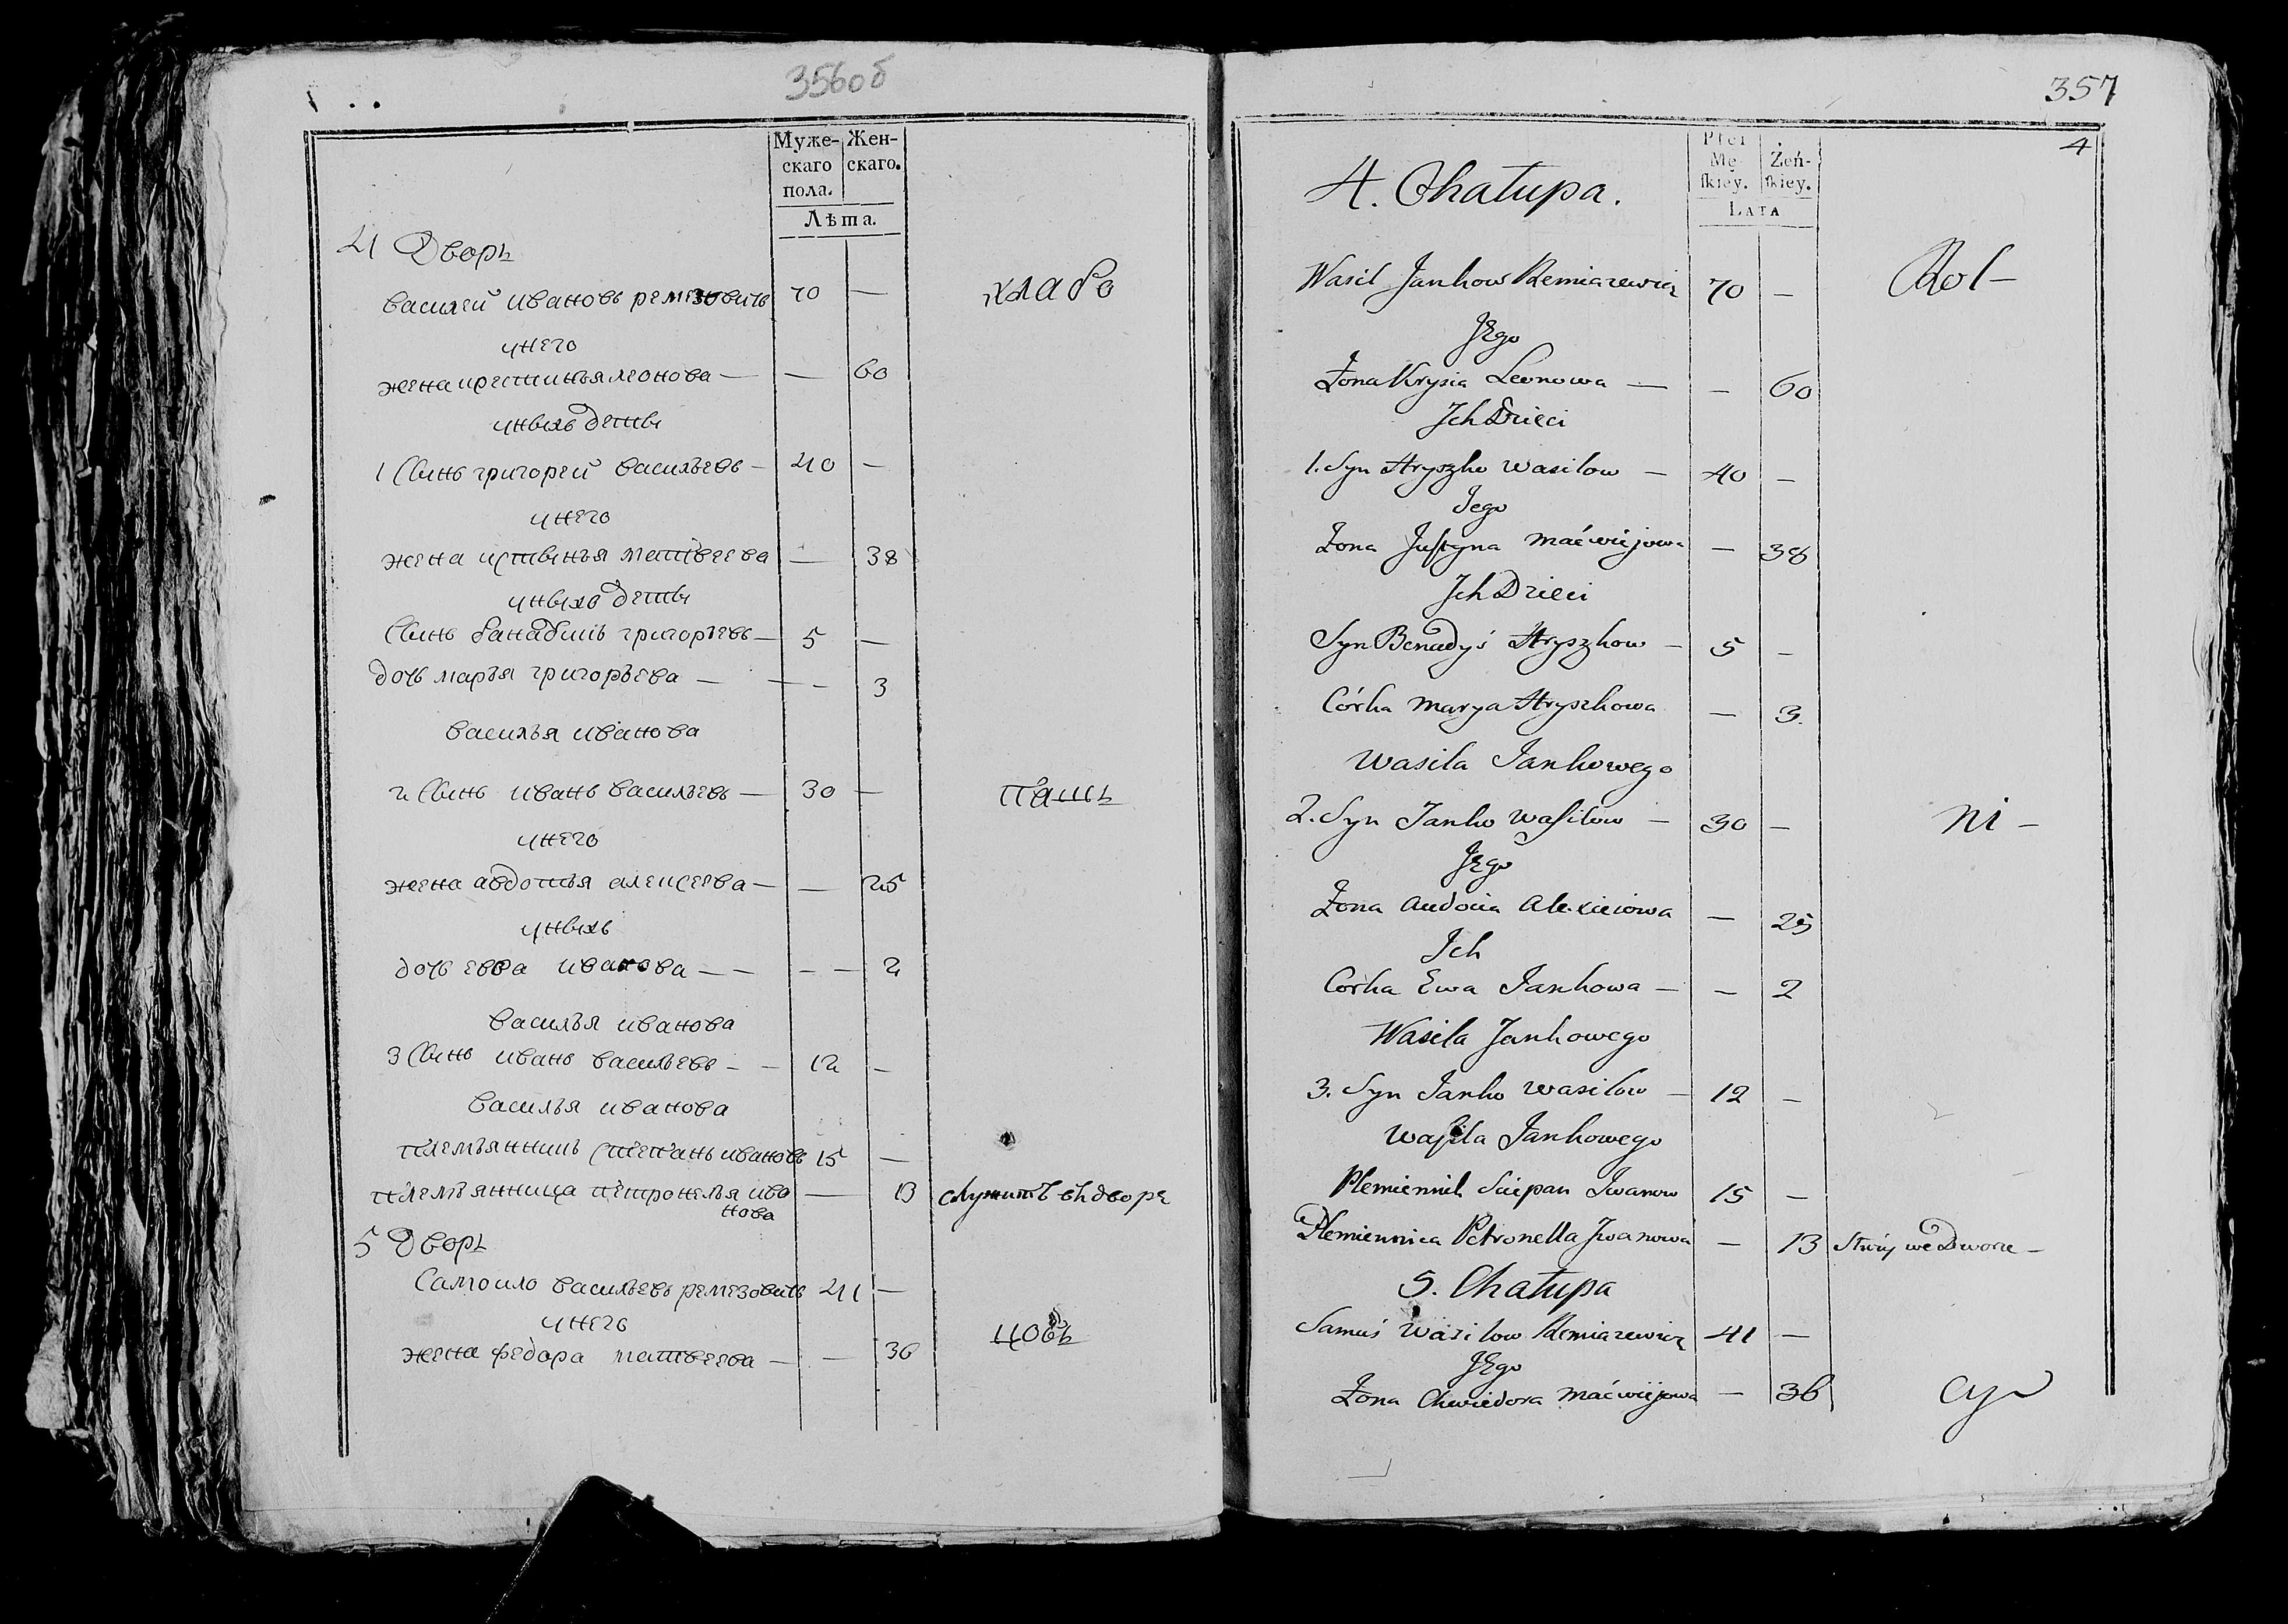 356об
Муже- Жен-
скаго скаго.
пола.
Лѣта.
4 Дворъ
василей ивановъ ремезовичь 70 — хлабо
унего
жена крестинья леонова — — 60
уныхъ детѣи
1 Сынъ григорей васильевъ — 40 —
унего
жена устинья матвеева — 38
уныхъ детѣи
Сынъ банадысь григорьевъ — 5 —
дочь марья григорьева — — — 3
василья иванова
2 Сынъ иванъ васильевъ — 30 — пашь
унего
жена авдотья алексеева — — 25
уныхъ
дочь евва иванова — — — — 2
василья иванова
3 Сынъ иванъ васильевъ — — 12 —
василья иванова
племьянникъ степанъ ивановъ 15 —
племьянница петронелья ива — 13 служитъ въ дворе
нова
5 Дворъ
Самоило васильевъ ремезовичь 41 —
унего цовъ
жена федора матвеева — — 36
357
4
Płci
Mę- Żeń-
skiey. skiey.
LATA
4. Chałupa.
Wasil Jankow Remiazewicz 70 — Rol-
Jego
Żona Krysia Leonowa — — 60
Jch Dzieci
1. Syn Hryszko Wasilow — 40 —
Jego
Żona Justyna Maćwiejowa — 38
Jch Dzieci
Syn Benadyś Hryszkow — 5 —
Córka Marya Hryszkowa — 3.
Wasila Jankowego
2. Syn Janko Wasilow — 30 — ni —
Jego
Żona Audocia Alexieiowa — 25
Jch
Corka Ewa Jankowa — — 2
Wasila Jankowego
3. Syn Janko Wasilow — 12 —
Wasila Jankowego
Plemiennik Sciepan Jwanow 15 —
Plemiennica Petronella Jwanowa — 13 Służy we Dworze —
5. Chałupa
Samuś Wasilow Remiazewicz 41 —
Jego
Żona Chwiedora Maćwiejowa — 36 cy